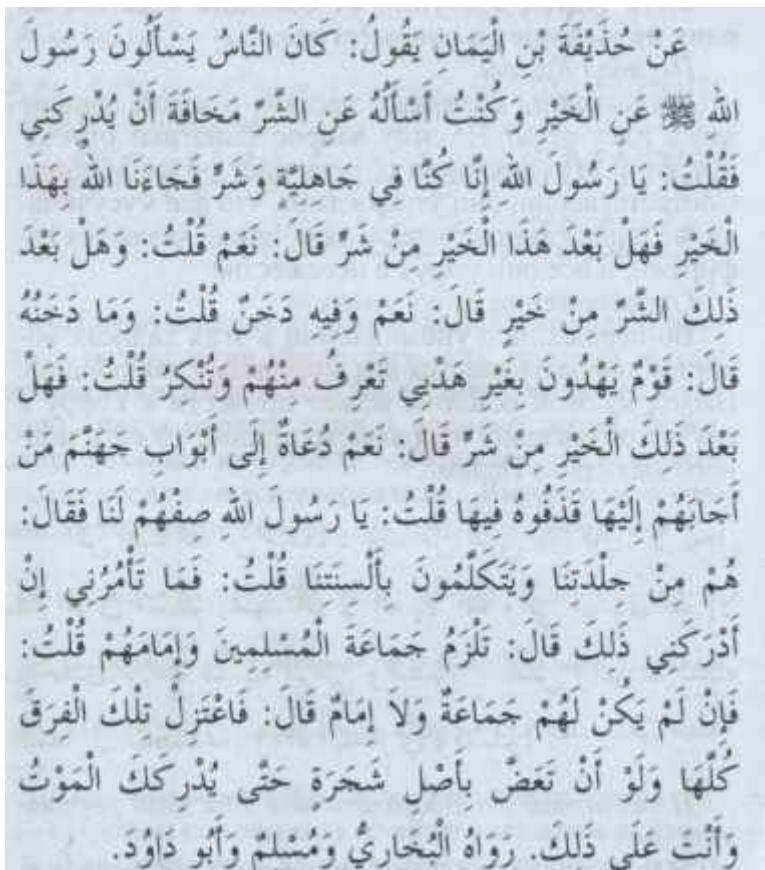 عَنْ حُذَيْفَةَ بْنِ الْيَمَانِ يَقُولُ: كَانَ النَّاسُ يَسْأَلُونَ رَسُولَ
اللهِ ﷺ عَنِ الْخَيْرِ وَكُنْتُ أَسْأَلُهُ عَنِ الشَّرِّ مَخَافَةَ أَنْ يُدْرِكَنِي
فَقُلْتُ: يَا رَسُولَ اللهِ إِنَّا كُنَّا فِي جَاهِلِيَّةٍ وَشَرٍّ فَجَاءَنَا اللهُ بِهَذَا
الْخَيْرِ فَهَلْ بَعْدَ هَذَا الْخَيْرِ مِنْ شَرٍّ قَالَ: نَعَمْ قُلْتُ: وَهَلْ بَعْدَ
ذَلِكَ الشَّرِّ مِنْ خَيْرٍ قَالَ: نَعَمْ وَفِيهِ دَخَنٌ قُلْتُ: وَمَا دَخَنُهُ
قَالَ: قَوْمٌ يَهْدُونَ بِغَيْرِ هَدْيِي تَعْرِفُ مِنْهُمْ وَتُنْكِرُ قُلْتُ: فَهَلْ
بَعْدَ ذَلِكَ الْخَيْرِ مِنْ شَرٍّ قَالَ: نَعَمْ دُعَاةٌ إِلَى أَبْوَابِ جَهَنَّمَ مَنْ
أَجَابَهُمْ إِلَيْهَا قَذَفُوهُ فِيهَا قُلْتُ: يَا رَسُولَ اللهِ صِفْهُمْ لَنَا فَقَالَ:
هُمْ مِنْ جِلْدَتِنَا وَيَتَكَلَّمُونَ بِأَلْسِنَتِنَا قُلْتُ: فَمَا تَأْمُرُنِي إِنْ
أَدْرَكَنِي ذَلِكَ قَالَ: تَلْزَمُ جَمَاعَةَ الْمُسْلِمِينَ وَإِمَامَهُمْ قُلْتُ:
فَإِنْ لَمْ يَكُنْ لَهُمْ جَمَاعَةٌ وَلاَ إِمَامٌ قَالَ: فَاعْتَزِلْ تِلْكَ الْفِرَقَ
كُلَّهَا وَلَوْ أَنْ تَعَضَّ بِأَصْلِ شَجَرَةٍ حَتَّى يُدْرِكَكَ الْمَوْتُ
وَأَنْتَ عَلَى ذَلِكَ. رَوَاهُ الْبُخَارِيُّ وَمُسْلِمٌ وَأَبُو دَاوُدَ.